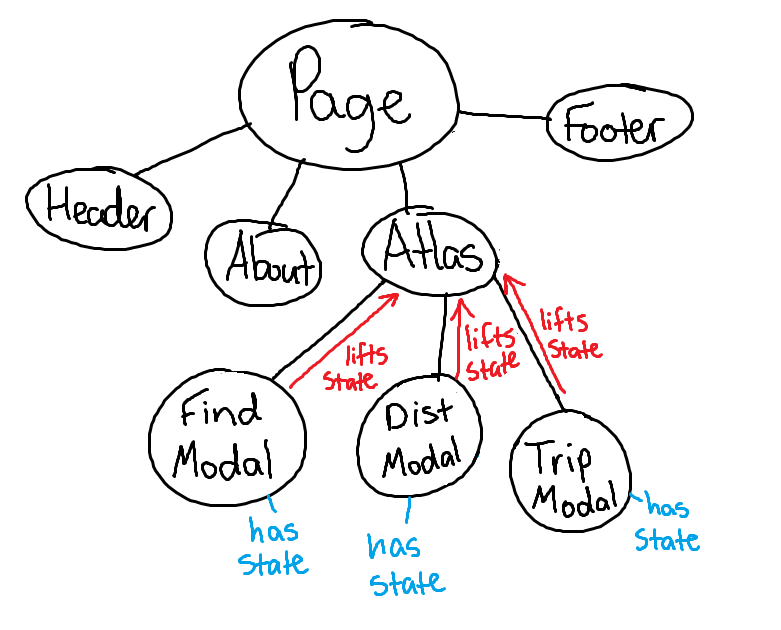 Page
Footer
Header
About
Atlas
lifts
state
lifts
state
lifts
state
Find
Modal
Dist
Modal
Trip
Modal
has
state
has
state
has
state